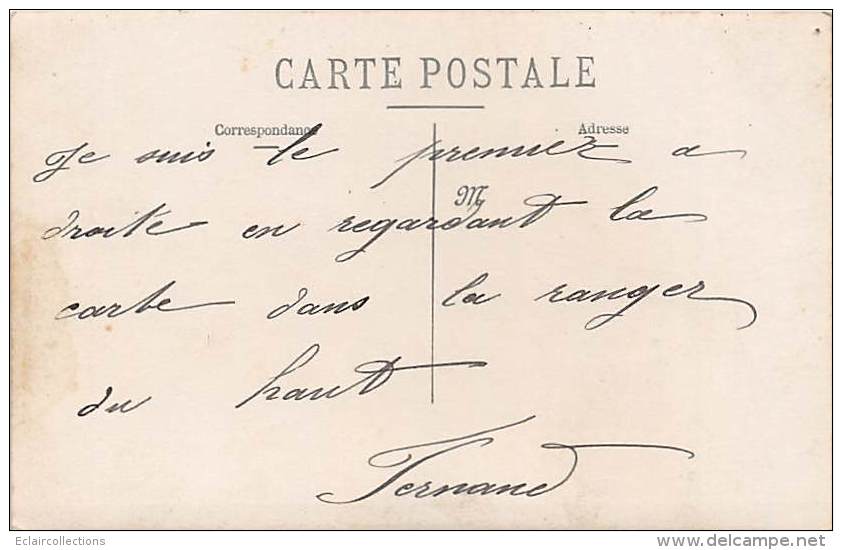 CARTE POSTALE
Correspondance
Adresse
Je suis le premier a
M
droite en regardant la
carte dans la ranger
du haut
Fernand
Eclaircollections
delcampe.net